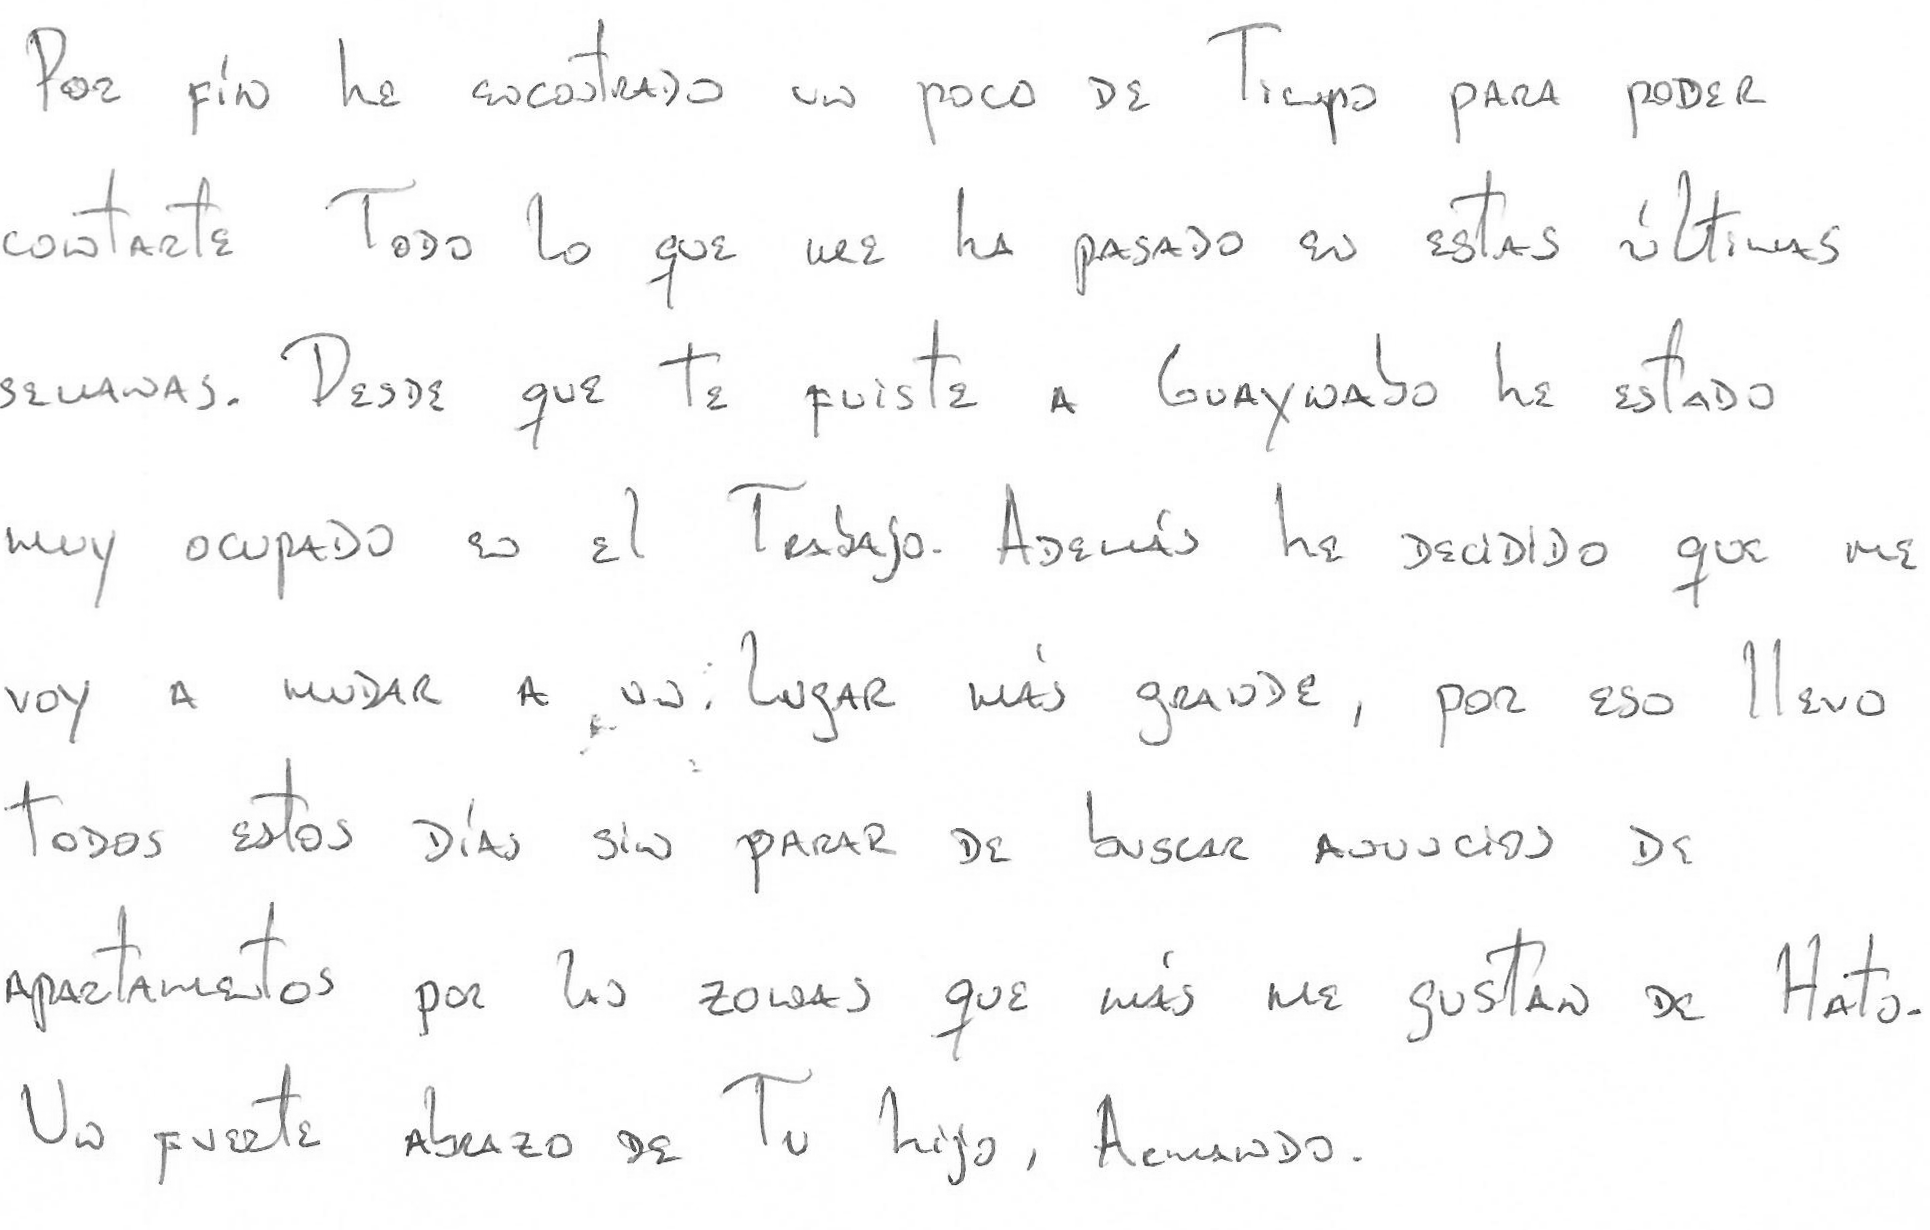 Por fín he encontrado un poco de Tiempo para poder
contarte Todo lo que me ha pasado en estas últimas
semanas. Desde que te fuiste a Guaynabo he estado
muy ocupado en el Trabajo. Además he decidido que me
voy a mudar a un lugar más grande, por eso llevo
todos estos días sin parar de buscar anuncios de
apartamentos por las zonas que más me gustan de Hato.
Un fuerte abrazo de Tu hijo, Armando.